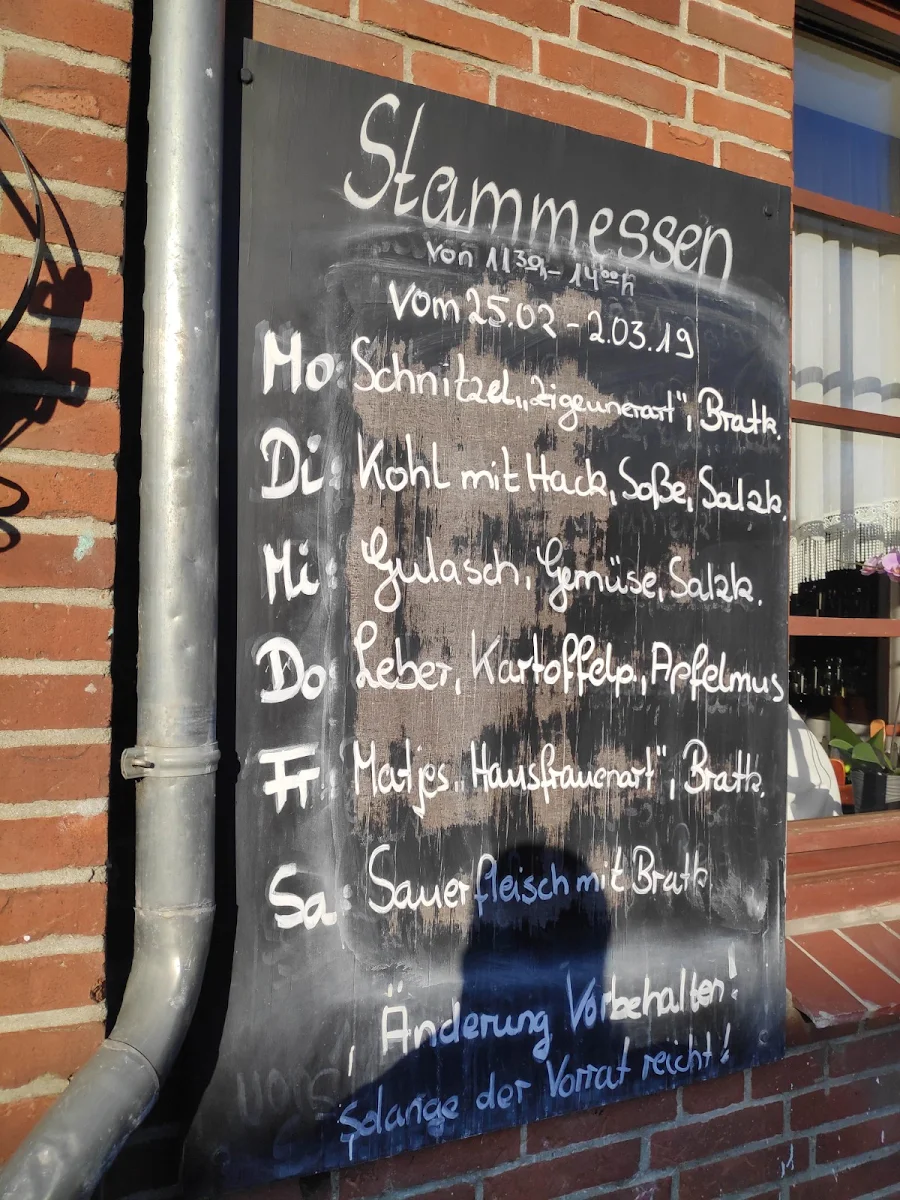 Stammessen
Von 11³⁰- 14⁰⁰h
Vom 25.02 - 2.03.19
Mo: Schnitzel „Zigeunerart", Bratk.
Di: Kohl mit Hack, Soße, Salzk.
Mi: Gulasch, Gemüse, Salzk.
Do: Leber, Kartoffelp., Apfelmus
Fr: Matjes „Hausfrauenart", Bratk.
Sa: Sauerfleisch mit Bratk
Änderung Vorbehalten!
Solange der Vorrat reicht!